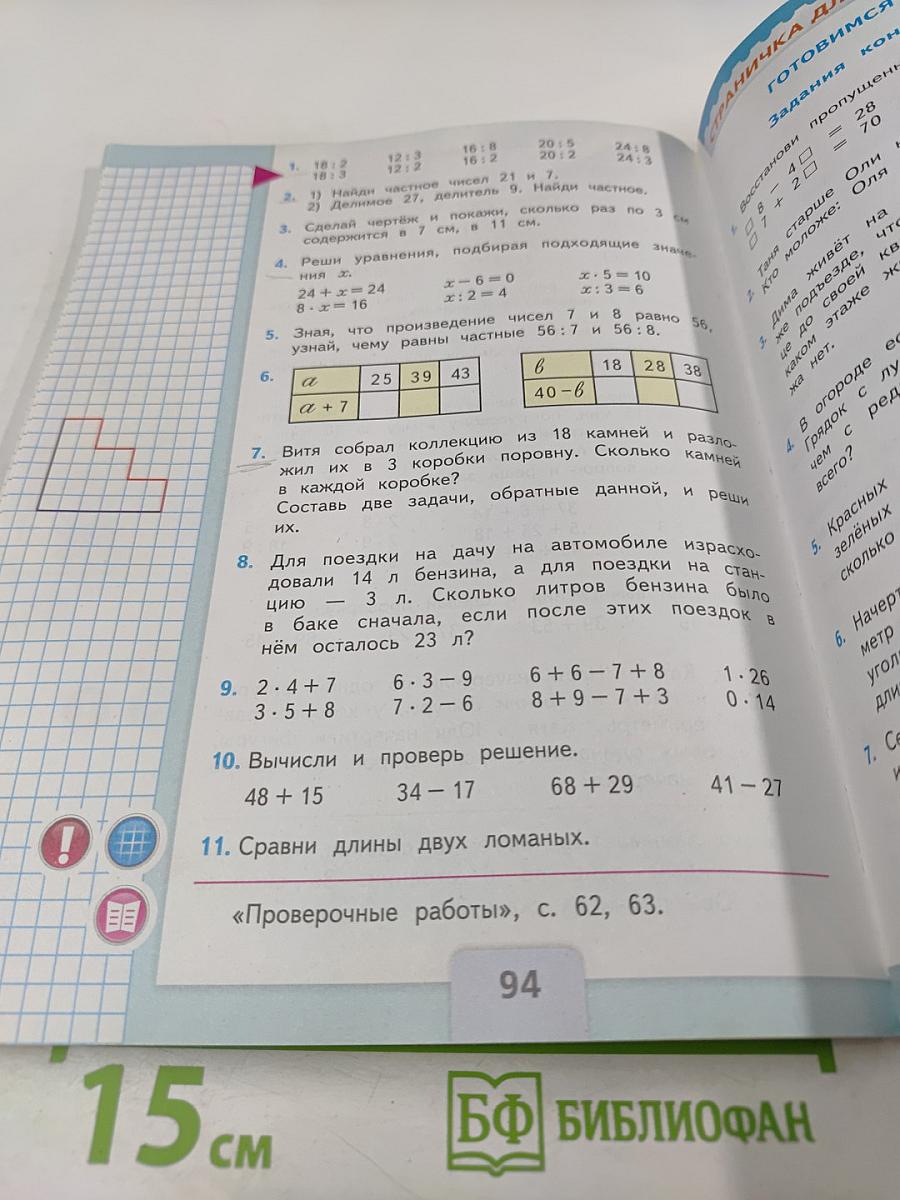 1. 18 : 2 12 : 3 16 : 8 20 : 5 24 : 8
18 : 3 12 : 2 16 : 2 20 : 2 24 : 3
2. 1) Найди частное чисел 21 и 7.
2) Делимое 27, делитель 9. Найди частное.
3. Сделай чертёж и покажи, сколько раз по 3 см
содержится в 7 см, в 11 см.
4. Реши уравнения, подбирая подходящие значе-
ния x.
24 + x = 24 x − 6 = 0 x · 5 = 10
8 · x = 16 x : 2 = 4 x : 3 = 6
5. Зная, что произведение чисел 7 и 8 равно 56,
узнай, чему равны частные 56 : 7 и 56 : 8.
6. a 25 39 43 в 18 28 38
a + 7 40 − в
7. Витя собрал коллекцию из 18 камней и разло-
жил их в 3 коробки поровну. Сколько камней
в каждой коробке?
Составь две задачи, обратные данной, и реши
их.
8. Для поездки на дачу на автомобиле израсхо-
довали 14 л бензина, а для поездки на стан-
цию — 3 л. Сколько литров бензина было
в баке сначала, если после этих поездок в
нём осталось 23 л?
9. 2 · 4 + 7 6 · 3 − 9 6 + 6 − 7 + 8 1 · 26
3 · 5 + 8 7 · 2 − 6 8 + 9 − 7 + 3 0 · 14
10. Вычисли и проверь решение.
48 + 15 34 − 17 68 + 29 41 − 27
11. Сравни длины двух ломаных.
«Проверочные работы», с. 62, 63.
94
СТРАНИЧКА ДЛ
ГОТОВИМСЯ
Задания кон
1. Восстанови пропущенн
□8 − 4□ = 28
□7 + 2□ = 70
2. Таня старше Оли
Кто моложе: Оля
3. Дима живёт на
же подъезде, что
це до своей кв
каком этаже жи
жа нет.
4. В огороде
Грядок с лу
чем с ред
всего?
5. Красных
зелёных
сколько
6. Начерт
метр
угол
дли
7.
15 см
БФ БИБЛИОФАН